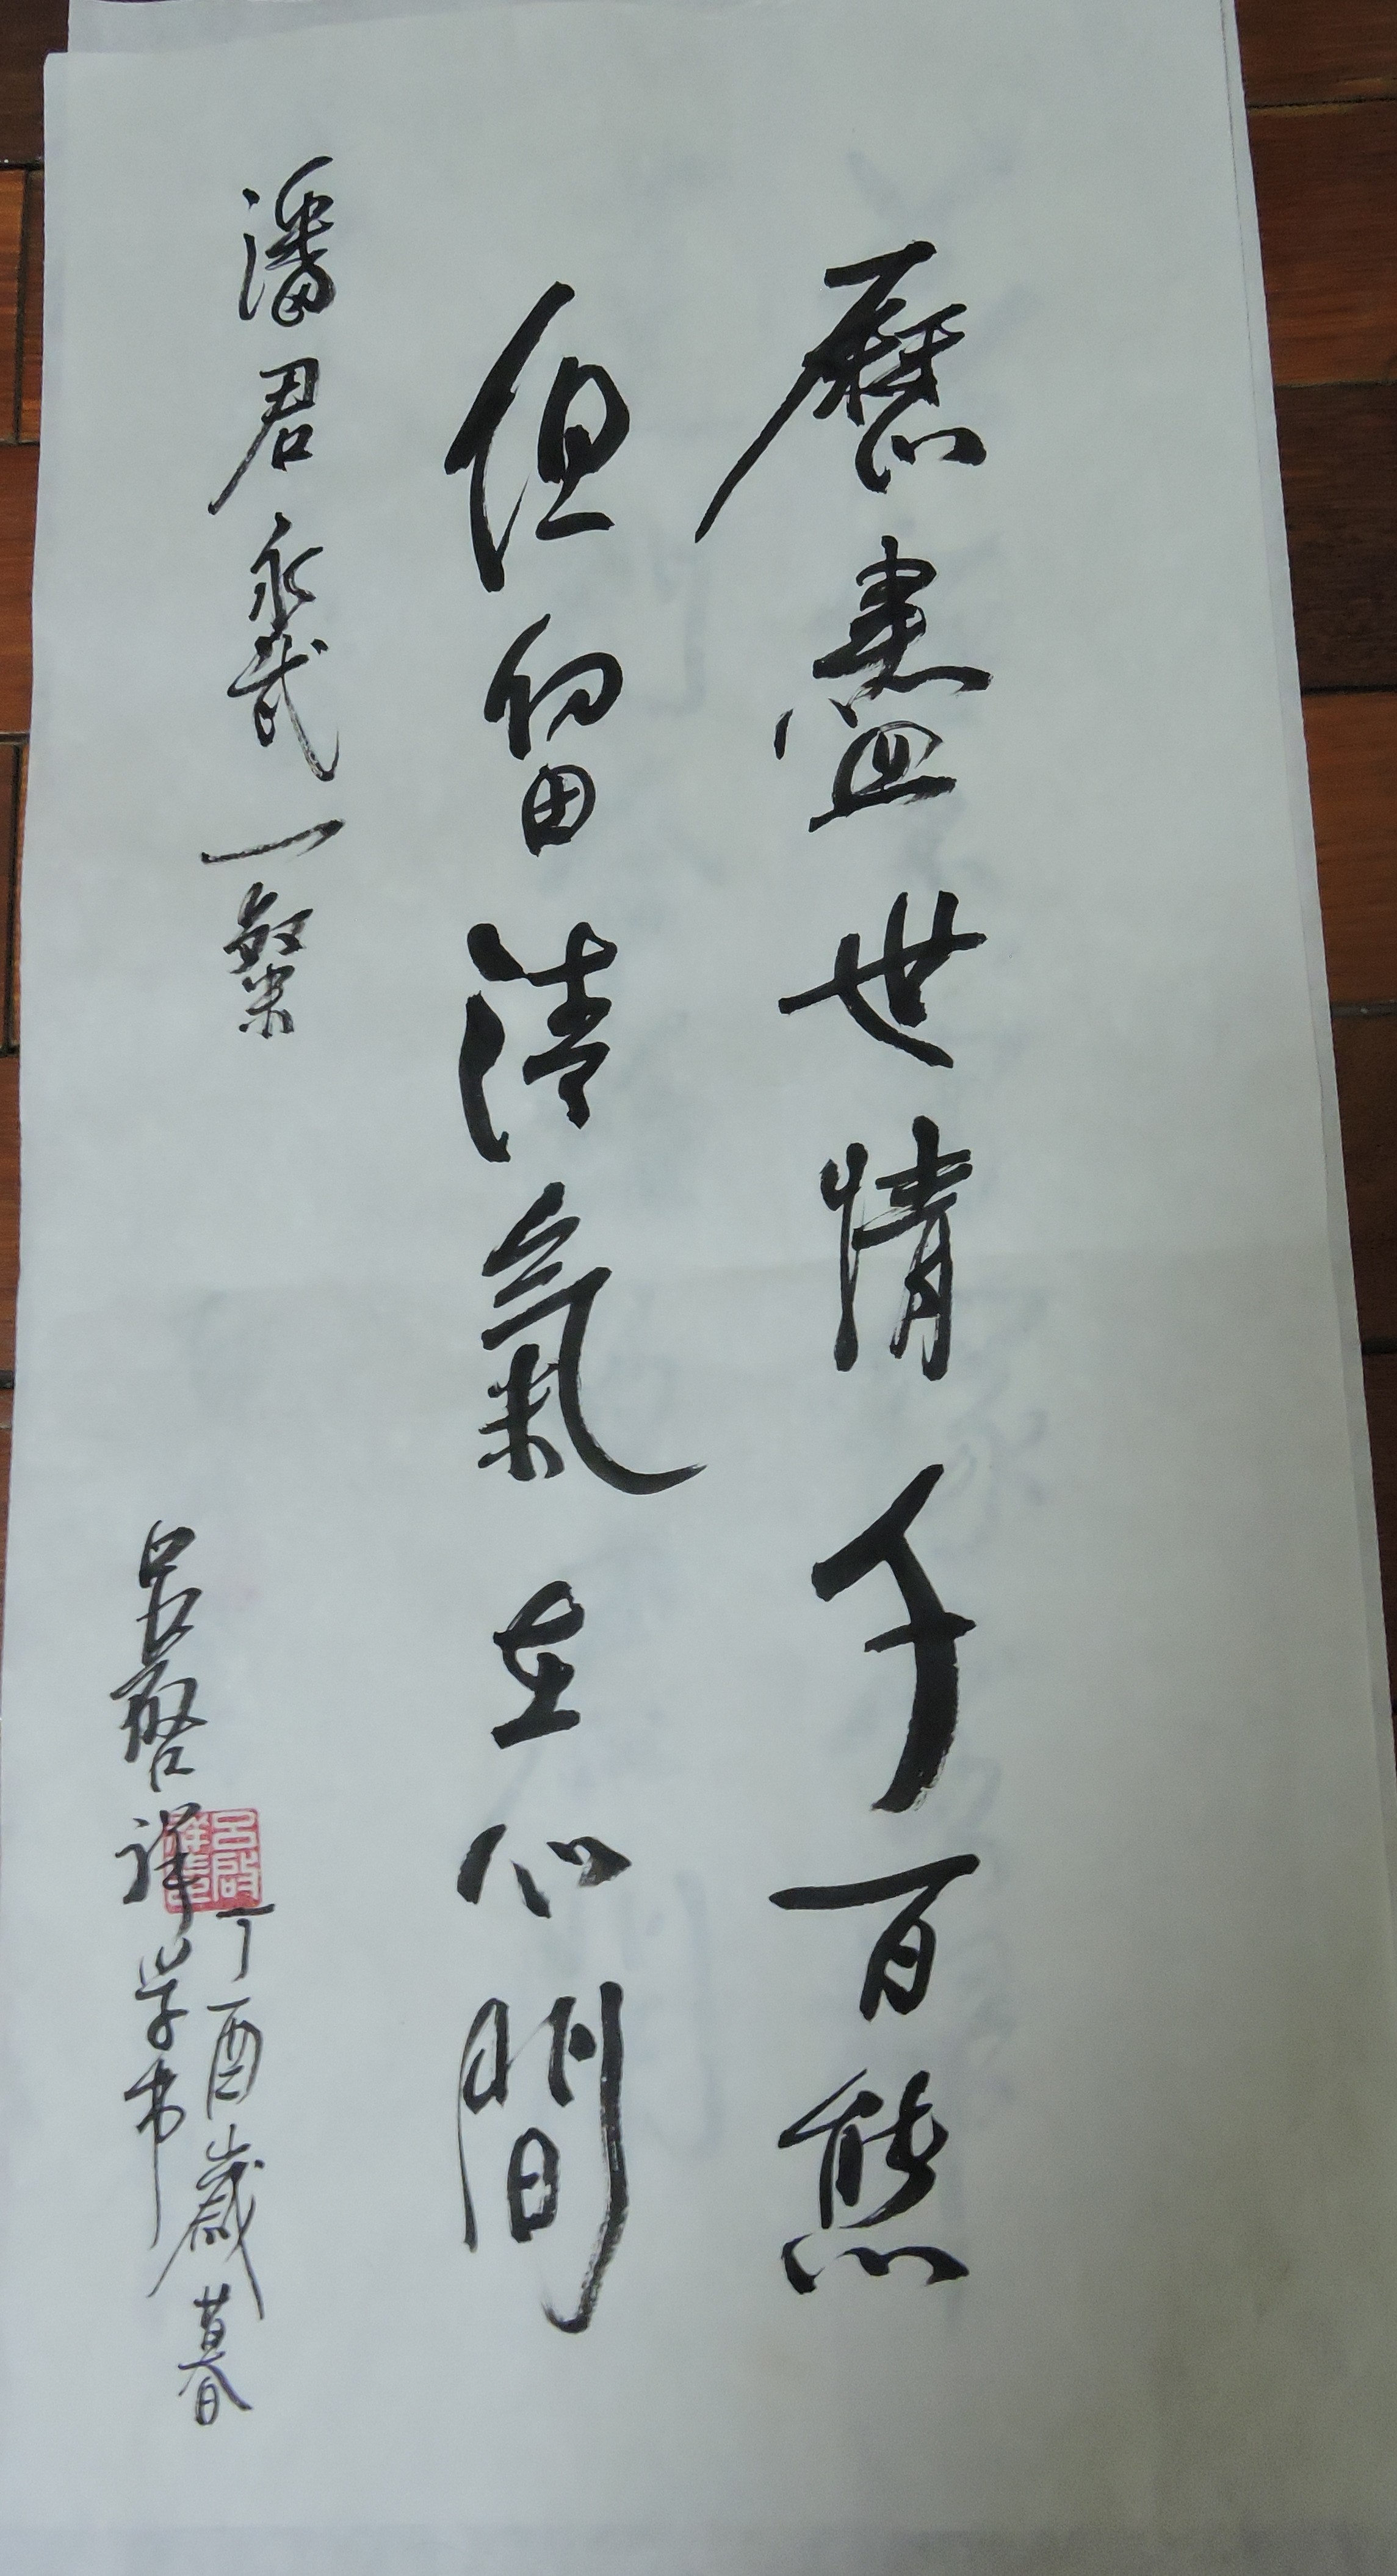 歷盡世情千百態
但留清氣在心間
潘君永武一粲
丁酉歲暮
呂啓祥学书
呂啟祥